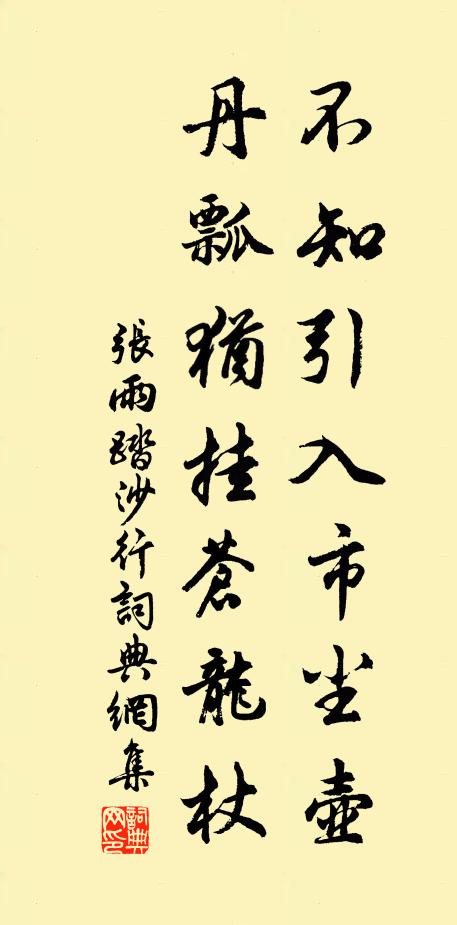 不知引入市坐壺
丹瓢猶挂蒼龍杖
張雨踏沙行詞典網集
詞典網印